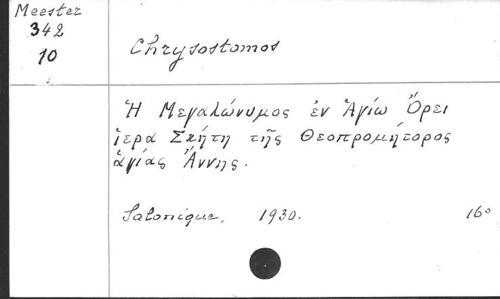 Meester
342
10
Chrysostomos
Ἡ Μεγαλώνυμος ἐν Ἁγίῳ Ὄρει
ἱερα Σκήτη τῆς Θεοπρομήτορος
ἁγίας Ἄννης.
Salonique, 1930. 16°